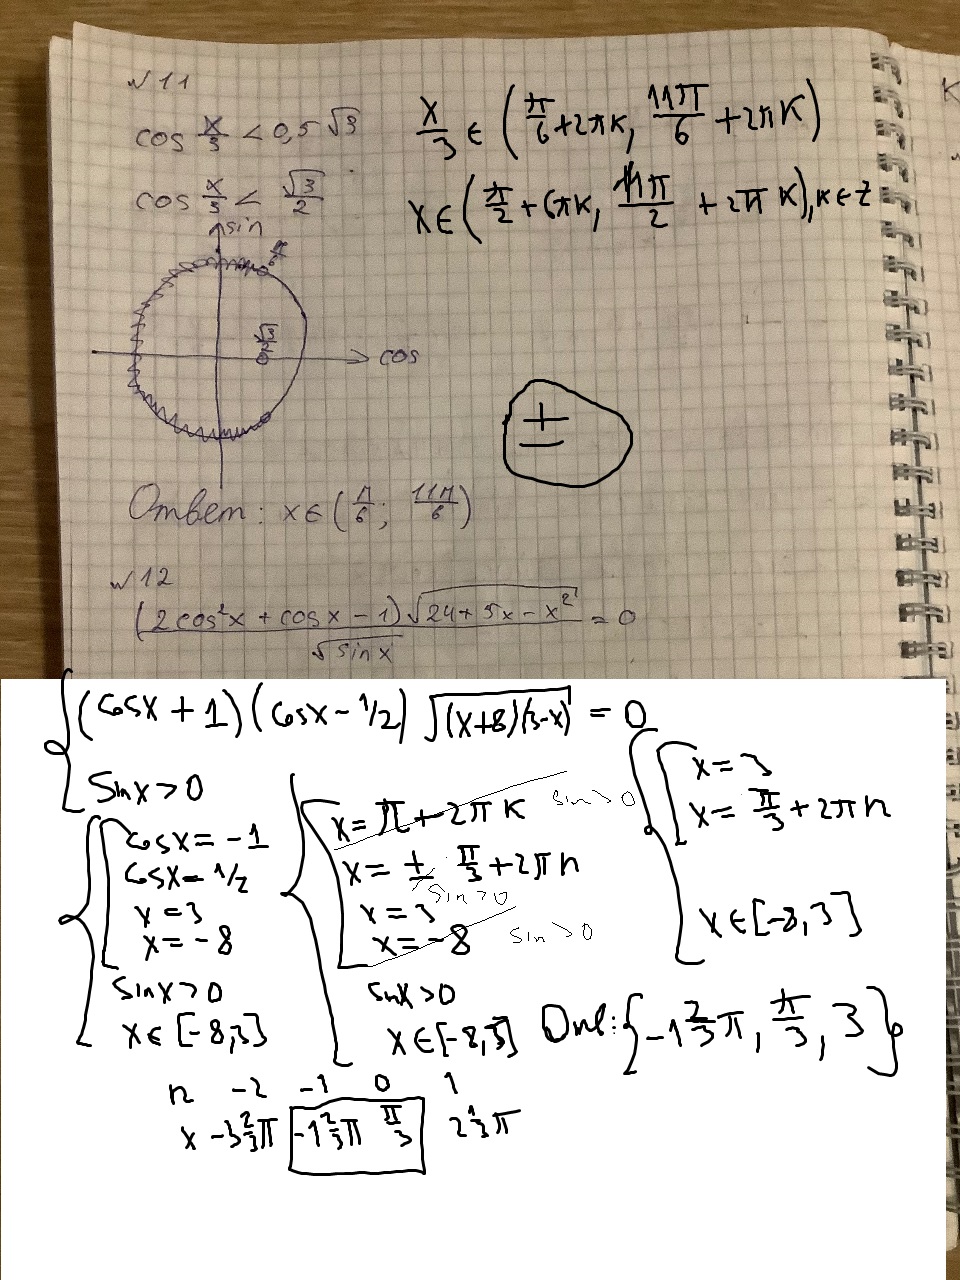 N11
cos x/3 < 0,5 √3
cos x/3 < √3/2
sin
π/6
√3/2
cos
x/3 ∈ (π/6 + 2πk, 11π/6 + 2πk)
x ∈ (π/2 + 6πk, 11π/2 + 2πk), k ∈ Z
±
Ответ: x ∈ (π/6; 11π/6)
N12
(2cos²x + cosx − 1)√(24 + 5x − x²) / √sinx = 0
(cosx + 1)(cosx − 1/2)√((x+8)(3−x)) = 0
sinx > 0
cosx = −1
cosx = 1/2
x = 3
x = −8
sinx > 0
x ∈ [−8,3]
x = π + 2πk sin > 0
x = ± π/3 + 2πn
sin > 0
x = 3
x = −8 sin > 0
sinx > 0
x ∈ [−8,3]
x = 3
x = π/3 + 2πn
x ∈ [−8, 3]
Отв: {−1 2/3 π, π/3, 3}
n −2 −1 0 1
x −3 2/3 π −1 2/3 π π/3 2 1/3 π